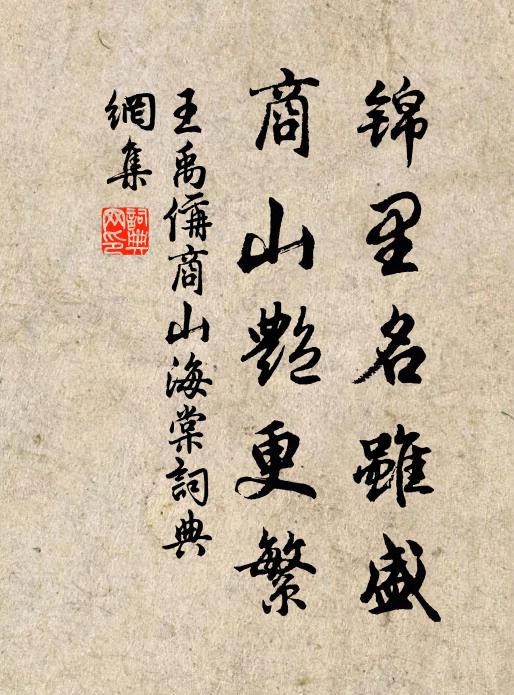 锦里名雖盛
商山艷更繁
王禹偁商山海棠詞典
網集
詞典
网印